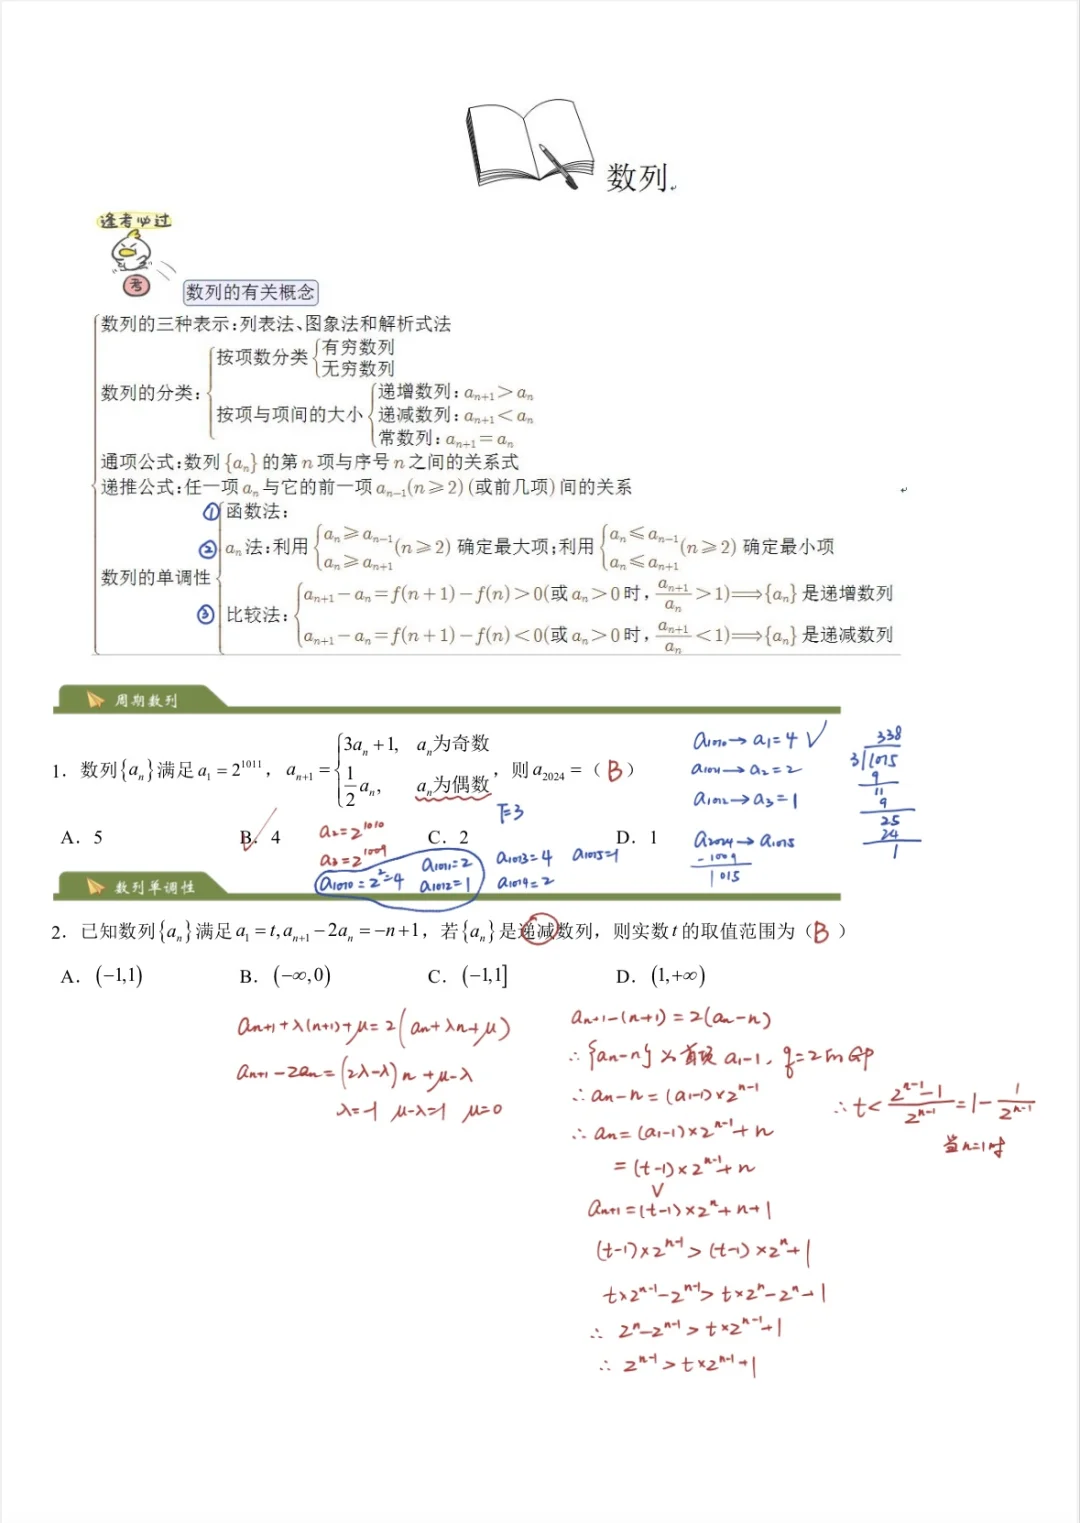 数列
逢考必过
考
数列的有关概念
数列的三种表示:列表法、图象法和解析式法
数列的分类:
按项数分类{有穷数列
无穷数列
按项与项间的大小{递增数列: aₙ₊₁>aₙ
递减数列: aₙ₊₁<aₙ
常数列: aₙ₊₁=aₙ
通项公式:数列{aₙ}的第n项与序号n之间的关系式
递推公式:任一项aₙ与它的前一项aₙ₋₁(n≥2)(或前几项)间的关系
数列的单调性
① 函数法:
② aₙ法:利用{aₙ≥aₙ₋₁, aₙ≥aₙ₊₁ (n≥2) 确定最大项;利用{aₙ≤aₙ₋₁, aₙ≤aₙ₊₁ (n≥2) 确定最小项
③ 比较法:
aₙ₊₁-aₙ=f(n+1)-f(n)>0(或aₙ>0时, aₙ₊₁/aₙ>1)⟹{aₙ}是递增数列
aₙ₊₁-aₙ=f(n+1)-f(n)<0(或aₙ>0时, aₙ₊₁/aₙ<1)⟹{aₙ}是递减数列
周期数列
1. 数列{aₙ}满足a₁=2¹⁰¹¹, aₙ₊₁={3aₙ+1, aₙ为奇数; 1/2 aₙ, aₙ为偶数, 则a₂₀₂₄=( B )
A. 5 B. 4 C. 2 D. 1
T=3
a₂=2¹⁰¹⁰
a₃=2¹⁰⁰⁹
a₁₀₁₀=2²=4
a₁₀₁₁=2
a₁₀₁₂=1
a₁₀₁₃=4
a₁₀₁₄=2
a₁₀₁₅=1
a₁₀₁₀→a₁=4 √
a₁₀₁₁→a₂=2
a₁₀₁₂→a₃=1
a₂₀₂₄→a₁₀₁₅
-1009
1015
338
3/1015
9
11
9
25
24
1
数列单调性
2. 已知数列{aₙ}满足a₁=t, aₙ₊₁-2aₙ=-n+1, 若{aₙ}是递减数列, 则实数t的取值范围为( B )
A. (-1,1) B. (-∞,0) C. (-1,1] D. (1,+∞)
aₙ₊₁+λ(n+1)+μ=2(aₙ+λn+μ)
aₙ₊₁-2aₙ=(2λ-λ)n+μ-λ
λ=-1 μ-λ=1 μ=0
aₙ₊₁-(n+1)=2(aₙ-n)
∴{aₙ-n}以首项a₁-1, q=2的GP
∴aₙ-n=(a₁-1)×2ⁿ⁻¹
∴aₙ=(a₁-1)×2ⁿ⁻¹+n
=(t-1)×2ⁿ⁻¹+n
∨
aₙ₊₁=(t-1)×2ⁿ+n+1
(t-1)×2ⁿ⁻¹>(t-1)×2ⁿ+1
t×2ⁿ⁻¹-2ⁿ⁻¹>t×2ⁿ-2ⁿ+1
∴2ⁿ-2ⁿ⁻¹>t×2ⁿ⁻¹+1
∴2ⁿ⁻¹>t×2ⁿ⁻¹+1
∴t<(2ⁿ⁻¹-1)/2ⁿ⁻¹=1-1/2ⁿ⁻¹
当n=1时